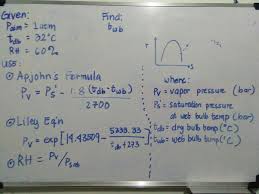 Given:
Patm = 1atm
tdb = 32°C
RH = 60%
Find:
twb
Use:
① Apjohn's Formula
Pv = Ps' - 1.8 (tdb - twb) / 2700
② Liley Eq'n
Pv = exp[14.43509 - 5333.33 / tdb+273]
③ RH = Pv/Psdb
T
S
where:
Pv = vapor pressure (bar)
Ps' = saturation pressure
at wet bulb temp (bar)
tdb = dry bulb temp (°C)
twb = wet bulb temp (°C)